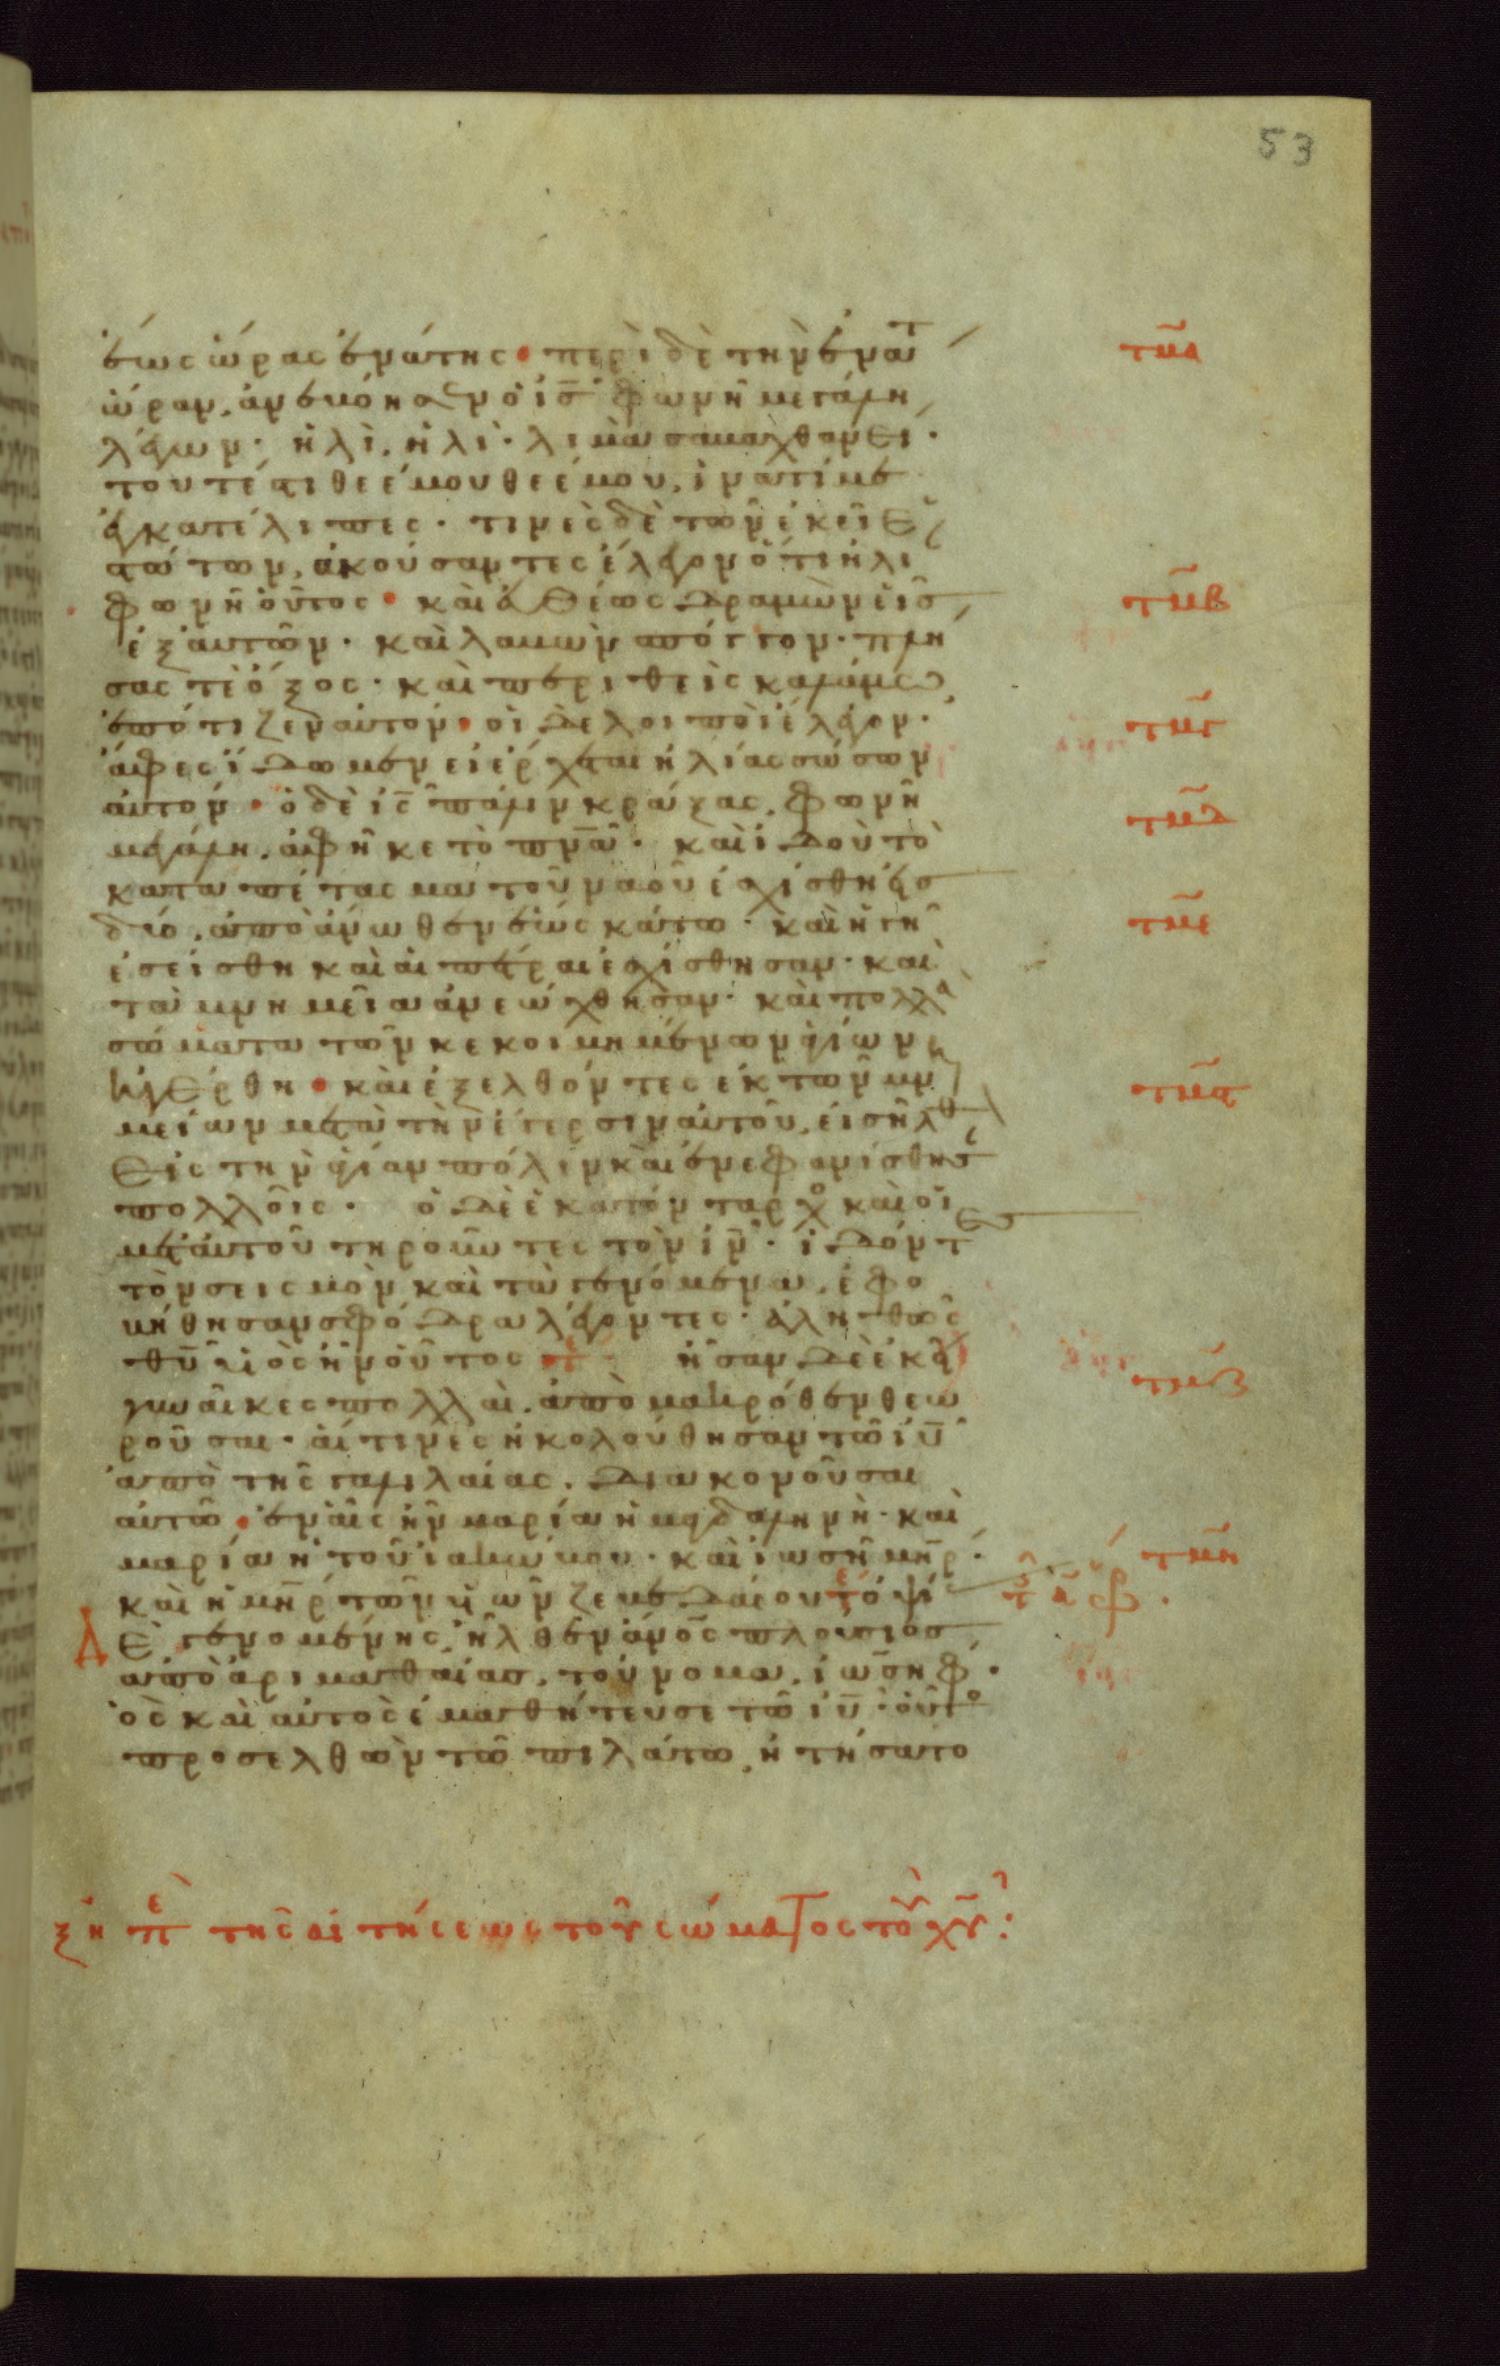 53
ἕως ὥρας ἐνάτης· περὶ δὲ τὴν ἐνάτ τμα
ὥραν, ἀνεβόησεν ὁ ις φωνῆ μεγάλη
λέγων· ἠλὶ, ἠλὶ· λιμὰ σαβαχθανεί·
τουτέστι θεέ μου θεέ μου, ἱνατί με
ἐγκατέλιπες· τινὲς δὲ τῶν ἐκεῖ ἑ
στώτων, ἀκούσαντες ἔλεγον ὅτι ἠλί
φωνεῖ οὗτος· καὶ εὐθέως δραμὼν εἷς τμβ
ἐξ αὐτῶν· καὶ λαβὼν σπόγγον· πλή
σας τὲ ὄξος· καὶ περιθεὶς καλάμω
ἐπότιζεν αὐτόν· οἱ δὲ λοιποὶ ἔλεγον· τμγ
ἄφες ἴδωμεν εἰ ἔρχεται ἠλίας σώσων
αὐτόν· ὁ δὲ ις πάλιν κράξας, φωνῆ τμδ
μεγάλη, ἀφῆκε τὸ πνα· καὶ ἰδοὺ τὸ
καταπέτασμα τοῦ ναοῦ ἐσχίσθη εἰς
δύο, ἀπὸ ἄνωθεν ἕως κάτω· καὶ ἡ γῆ τμε
ἐσείσθη καὶ αἱ πέτραι ἐσχίσθησαν· καὶ
τὰ μνημεῖα ἀνεώχθησαν· καὶ πολλὰ
σώματα τῶν κεκοιμημένων ἁγίων
ἠγέρθη· καὶ ἐξελθόντες ἐκ τῶν μνη τμς
μείων μετὰ τὴν ἔγερσιν αὐτοῦ, εἰσῆλθ
εἰς τὴν ἁγίαν πόλιν καὶ ἐνεφανίσθησ
πολλοῖς· ὁ δὲ ἑκατόνταρχο καὶ οἱ
μετ αὐτοῦ τηροῦντες τὸν ιν· ἰδόντες
τὸν σεισμὸν καὶ τὰ γενόμενα, ἐφο
βήθησαν σφόδρα λέγοντες· ἀληθῶς
θυ υἱὸς ἦν οὗτος ἦσαν δὲ ἐκεῖ τμζ
γυναῖκες πολλαὶ, ἀπὸ μακρόθεν θεω
ροῦσαι· αἵτινες ἠκολούθησαν τῶ ιυ
ἀπὸ τῆς γαλιλαίας, διακονοῦσαι
αὐτῶ· ἐν αἷς ἦν μαρία ἡ μαγδαληνὴ· καὶ
μαρία ἡ τοῦ ἰακώβου· καὶ ἰωσῆ μηρ· τμη
καὶ ἡ μηρ τῶν υἱῶν ζεβεδαίου ὀψί
Δὲ γενομένης, ἦλθεν ἀνος πλούσιος
ἀπὸ ἀριμαθαίας, τούνομα, ἰωσηφ·
ὃς καὶ αὐτὸς ἐμαθήτευσε τῶ ιυ· οὗτο
προσελθὼν τῶ πιλάτω, ἠτήσατο
ξη πε τῆς αἰτήσεως τοῦ σώματος τοῦ χυ: